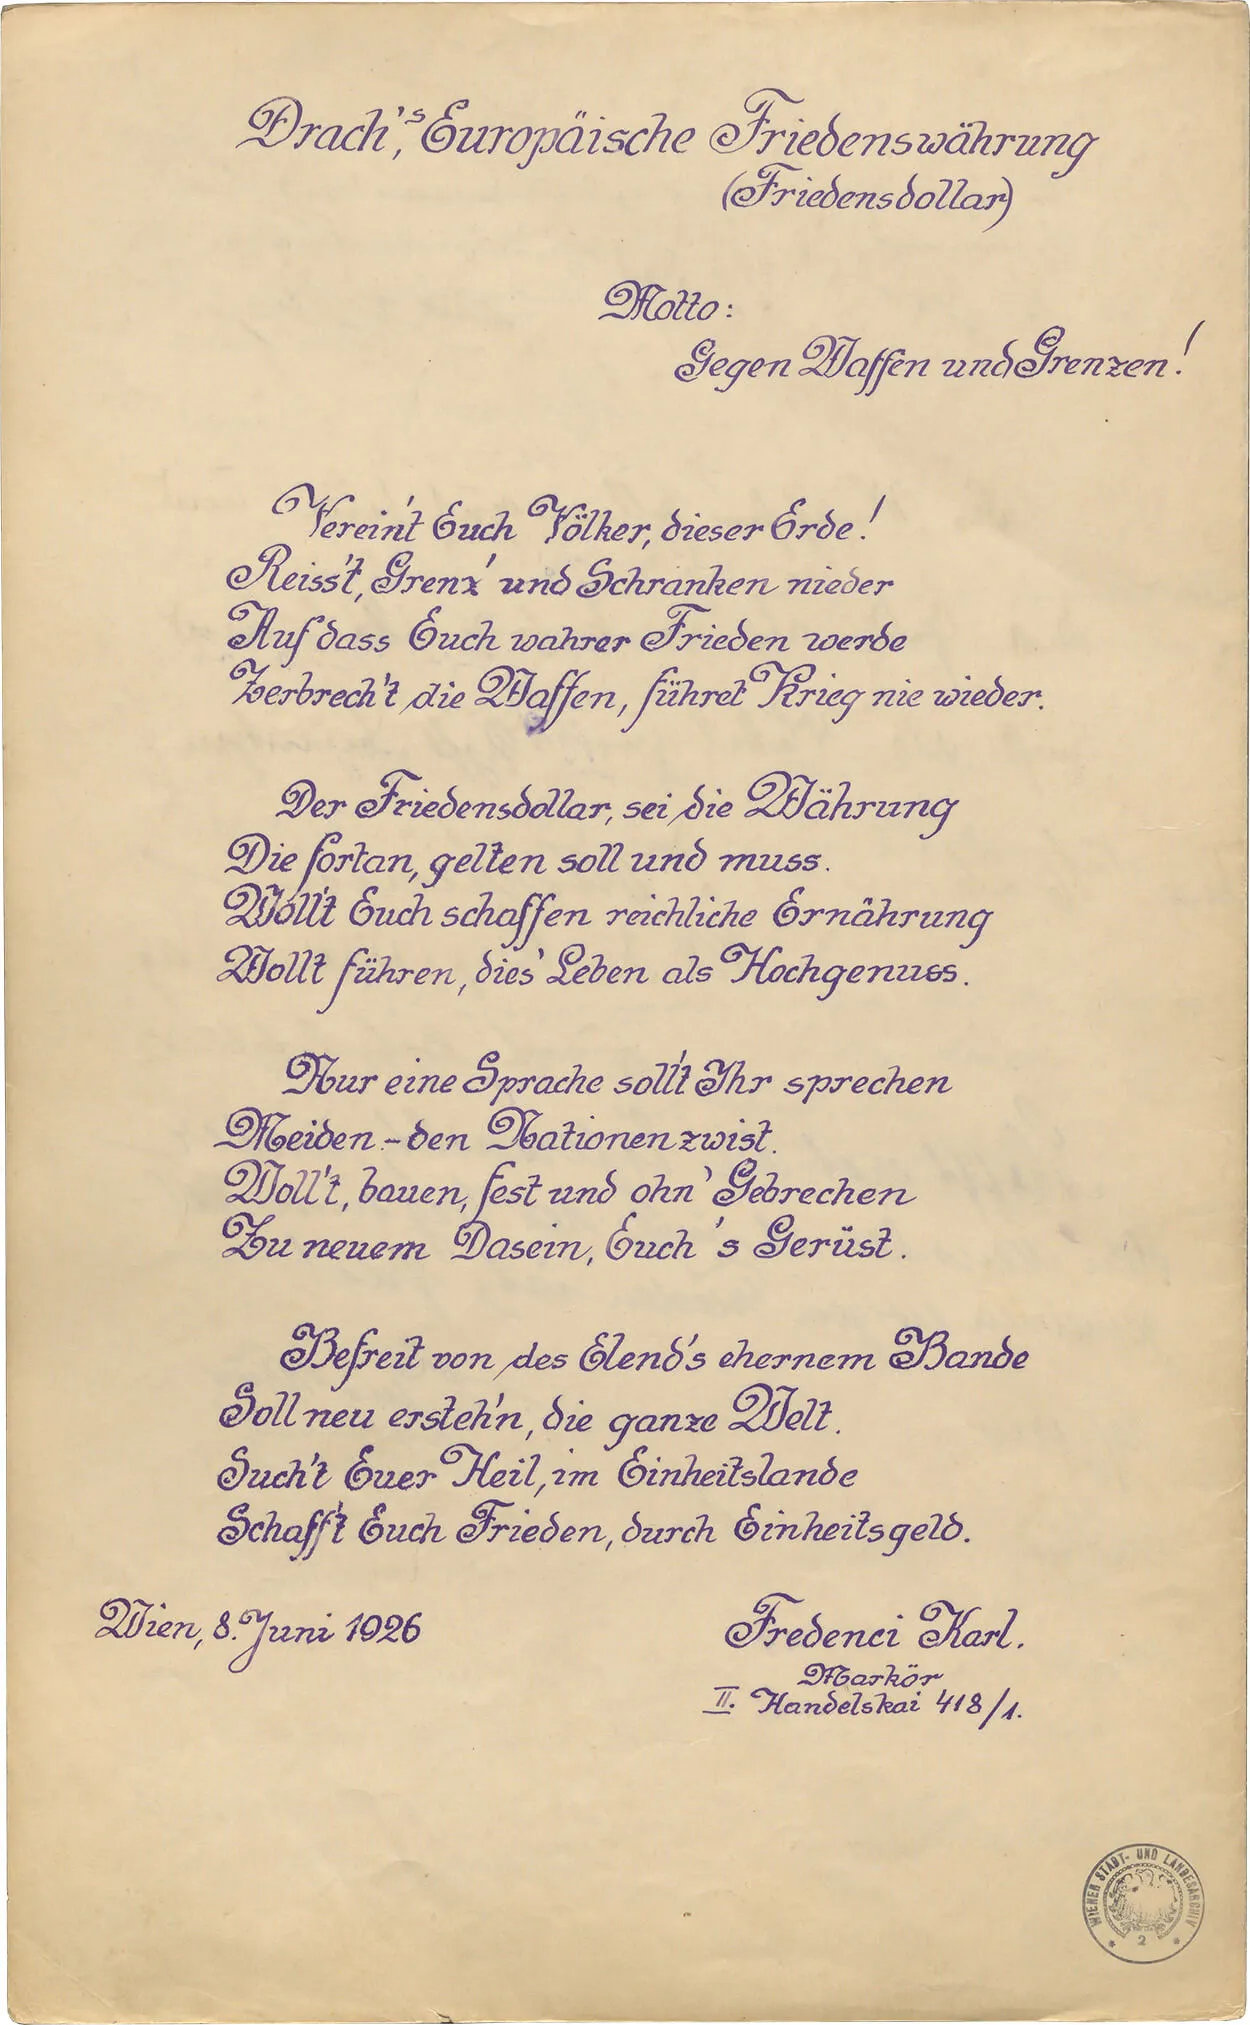 Drach,'s Europäische Friedenswährung
(Friedensdollar)
Motto:
Gegen Waffen und Grenzen!
Verein't Euch Völker, dieser Erde!
Reiss't, Grenz' und Schranken nieder
Auf dass Euch wahrer Frieden werde
Zerbrech't die Waffen, führet Krieg nie wieder.
Der Friedensdollar, sei die Währung
Die fortan, gelten soll und muss.
Woll't Euch schaffen reichliche Ernährung
Wollt führen, dies' Leben als Hochgenuss.
Nur eine Sprache soll't Ihr sprechen
Meiden - den Nationenzwist.
Woll't, bauen, fest und ohn' Gebrechen
Zu neuem Dasein, Euch 's Gerüst.
Befreit von des Elend's ehernem Bande
Soll neu ersteh'n, die ganze Welt.
Such't Euer Heil, im Einheitslande
Schaff't Euch Frieden, durch Einheitsgeld.
Wien, 8. Juni 1926
Fredenci Karl.
Markör
II. Handelskai 418/1.
WIENER STADT- UND LANDESARCHIV
* 2 *